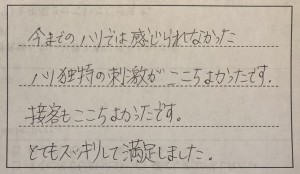 今までのハリでは感じられなかった
ハリ独特の刺激がここちよかったです。
接客もここちよかったです。
とてもスッキリして満足しました。